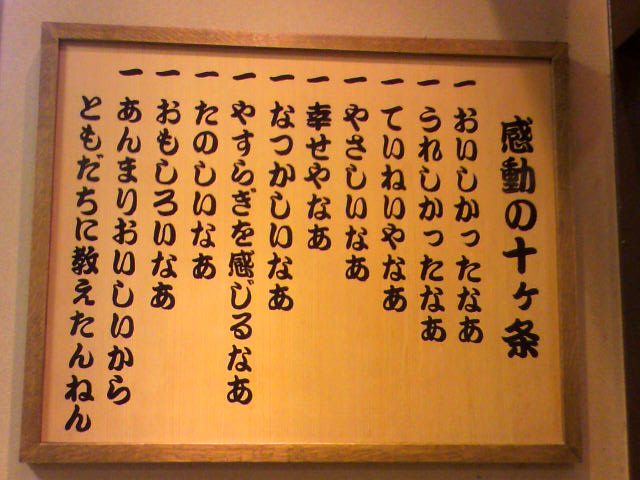 感動の十ヶ条
一 おいしかったなあ
一 うれしかったなあ
一 ていねいやなあ
一 やさしいなあ
一 幸せやなあ
一 なつかしいなあ
一 やすらぎを感じるなあ
一 たのしいなあ
一 おもしろいなあ
一 あんまりおいしいから
ともだちに教えたんねん